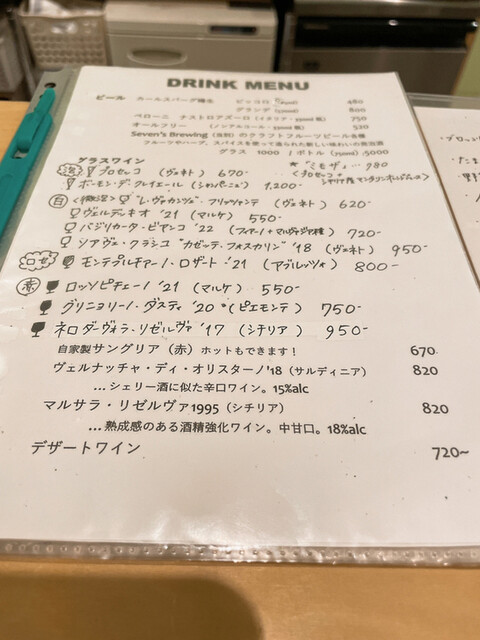 DRINK MENU
ビール カールスバーグ樽生 ピッコロ 480
グランデ 800
ペローニ ナストロアズーロ(イタリア・330ml 瓶) 750
オールフリー (ノンアルコール・330ml 瓶) 520
Seven's Brewing(池袋)のクラフトフルーツビール各種
フルーツやハーブ、スパイスを使って造られた新しい味わいの発泡酒
グラス 1000 / ボトル(750ml) 5000
グラスワイン
泡 プロセッコ (ヴェネト) 670- ★"ミモザ"… 980
<プロセッコ+
ボーモン・デ・クレイエール (シャンパーニュ) 1.200-
白 <微泡> "レ・ヴォカンツェ"・フリッツァンテ (ヴェネト) 620-
ヴェルディッキオ '21 (マルケ) 550-
バジリカータ・ビアンコ '22 720-
ソアヴェ・クラシコ "カゼッテ・フォスカリン" '18 (ヴェネト) 950-
ロゼ モンテプルチアーノ・ロザート '21 (アブルッツォ) 800-
赤 ロッソピチェーノ '21 (マルケ) 550-
グリニョリーノ・ダスティ '20 (ピエモンテ) 750-
ネロダーヴォラ・リゼルヴァ '17 (シチリア) 950-
自家製サングリア(赤)ホットもできます! 670
ヴェルナッチャ・ディ・オリスターノ'18(サルディニア) 820
…シェリー酒に似た辛口ワイン。15%alc
マルサラ・リゼルヴァ1995(シチリア) 820
…熟成感のある酒精強化ワイン。中甘口。18%alc
デザートワイン 720~